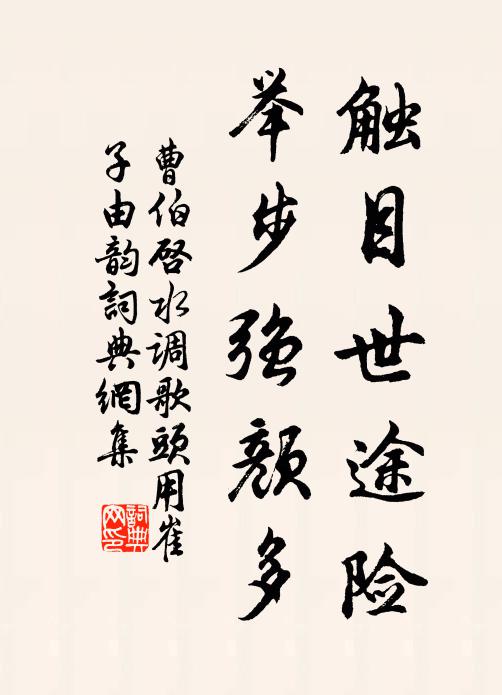 触目世途险
举步强颜多
曹伯启水调歌头用崔
子由韵词典网集
詞典
网印